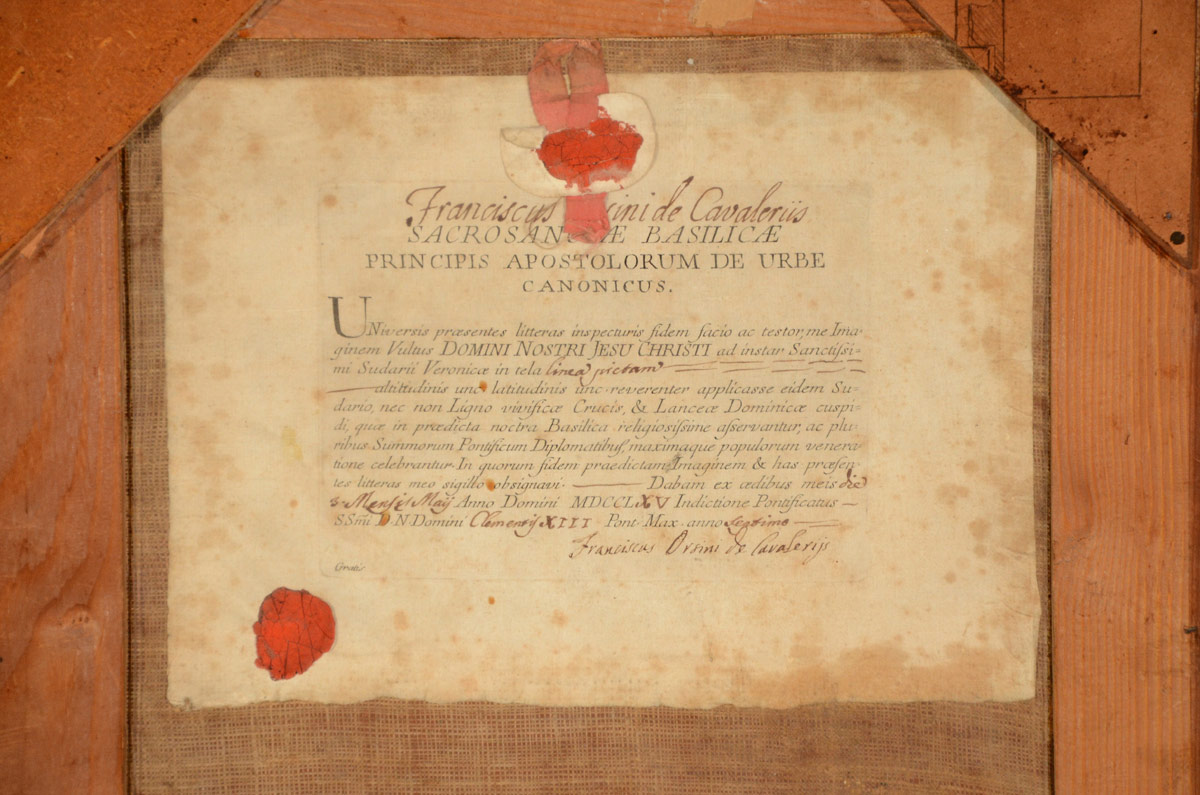 Franciscus Orsini de Cavaleriis
SACROSANCTÆ BASILICÆ
PRINCIPIS APOSTOLORUM DE URBE
CANONICUS.
UNiversis præsentes litteras inspecturis fidem facio ac testor, me Ima-
ginem Vultus DOMINI NOSTRI JESU CHRISTI ad instar Sanctissi-
mi Sudarii Veronicæ in tela linea pictam
altitudinis unc. latitudinis unc. reverenter applicasse eidem Su-
dario, nec non Ligno vivificæ Crucis, & Lanceæ Dominicæ cuspi-
di, quæ in prædicta noctra Basilica religiosissime asservantur, ac plu-
ribus Summorum Pontificum Diplomatibus, maximaque populorum venera-
tione celebrantur. In quorum fidem praedictam Imaginem & has præsen-
tes litteras meo sigillo obsignavi. Dabam ex ædibus meis die
Mensis Maij Anno Domini MDCCLXV Indictione Pontificatus
SSmi D. N. Domini Clementis XIII Pont. Max. anno septimo
Franciscus Orsini de Cavalerijs
Gratis